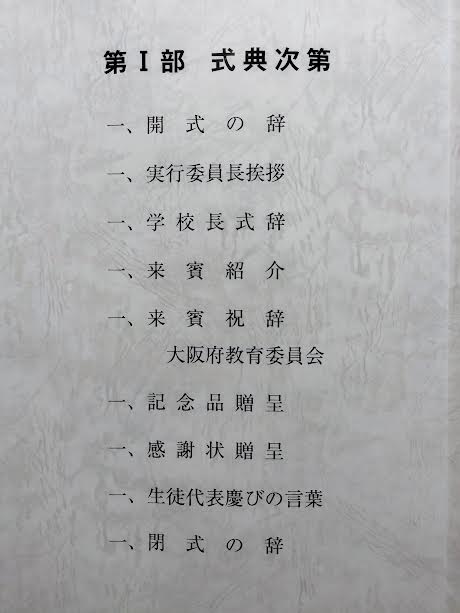 第Ⅰ部 式典次第
一、開式の辞
一、実行委員長挨拶
一、学校長式辞
一、来賓紹介
一、来賓祝辞
大阪府教育委員会
一、記念品贈呈
一、感謝状贈呈
一、生徒代表慶びの言葉
一、閉式の辞